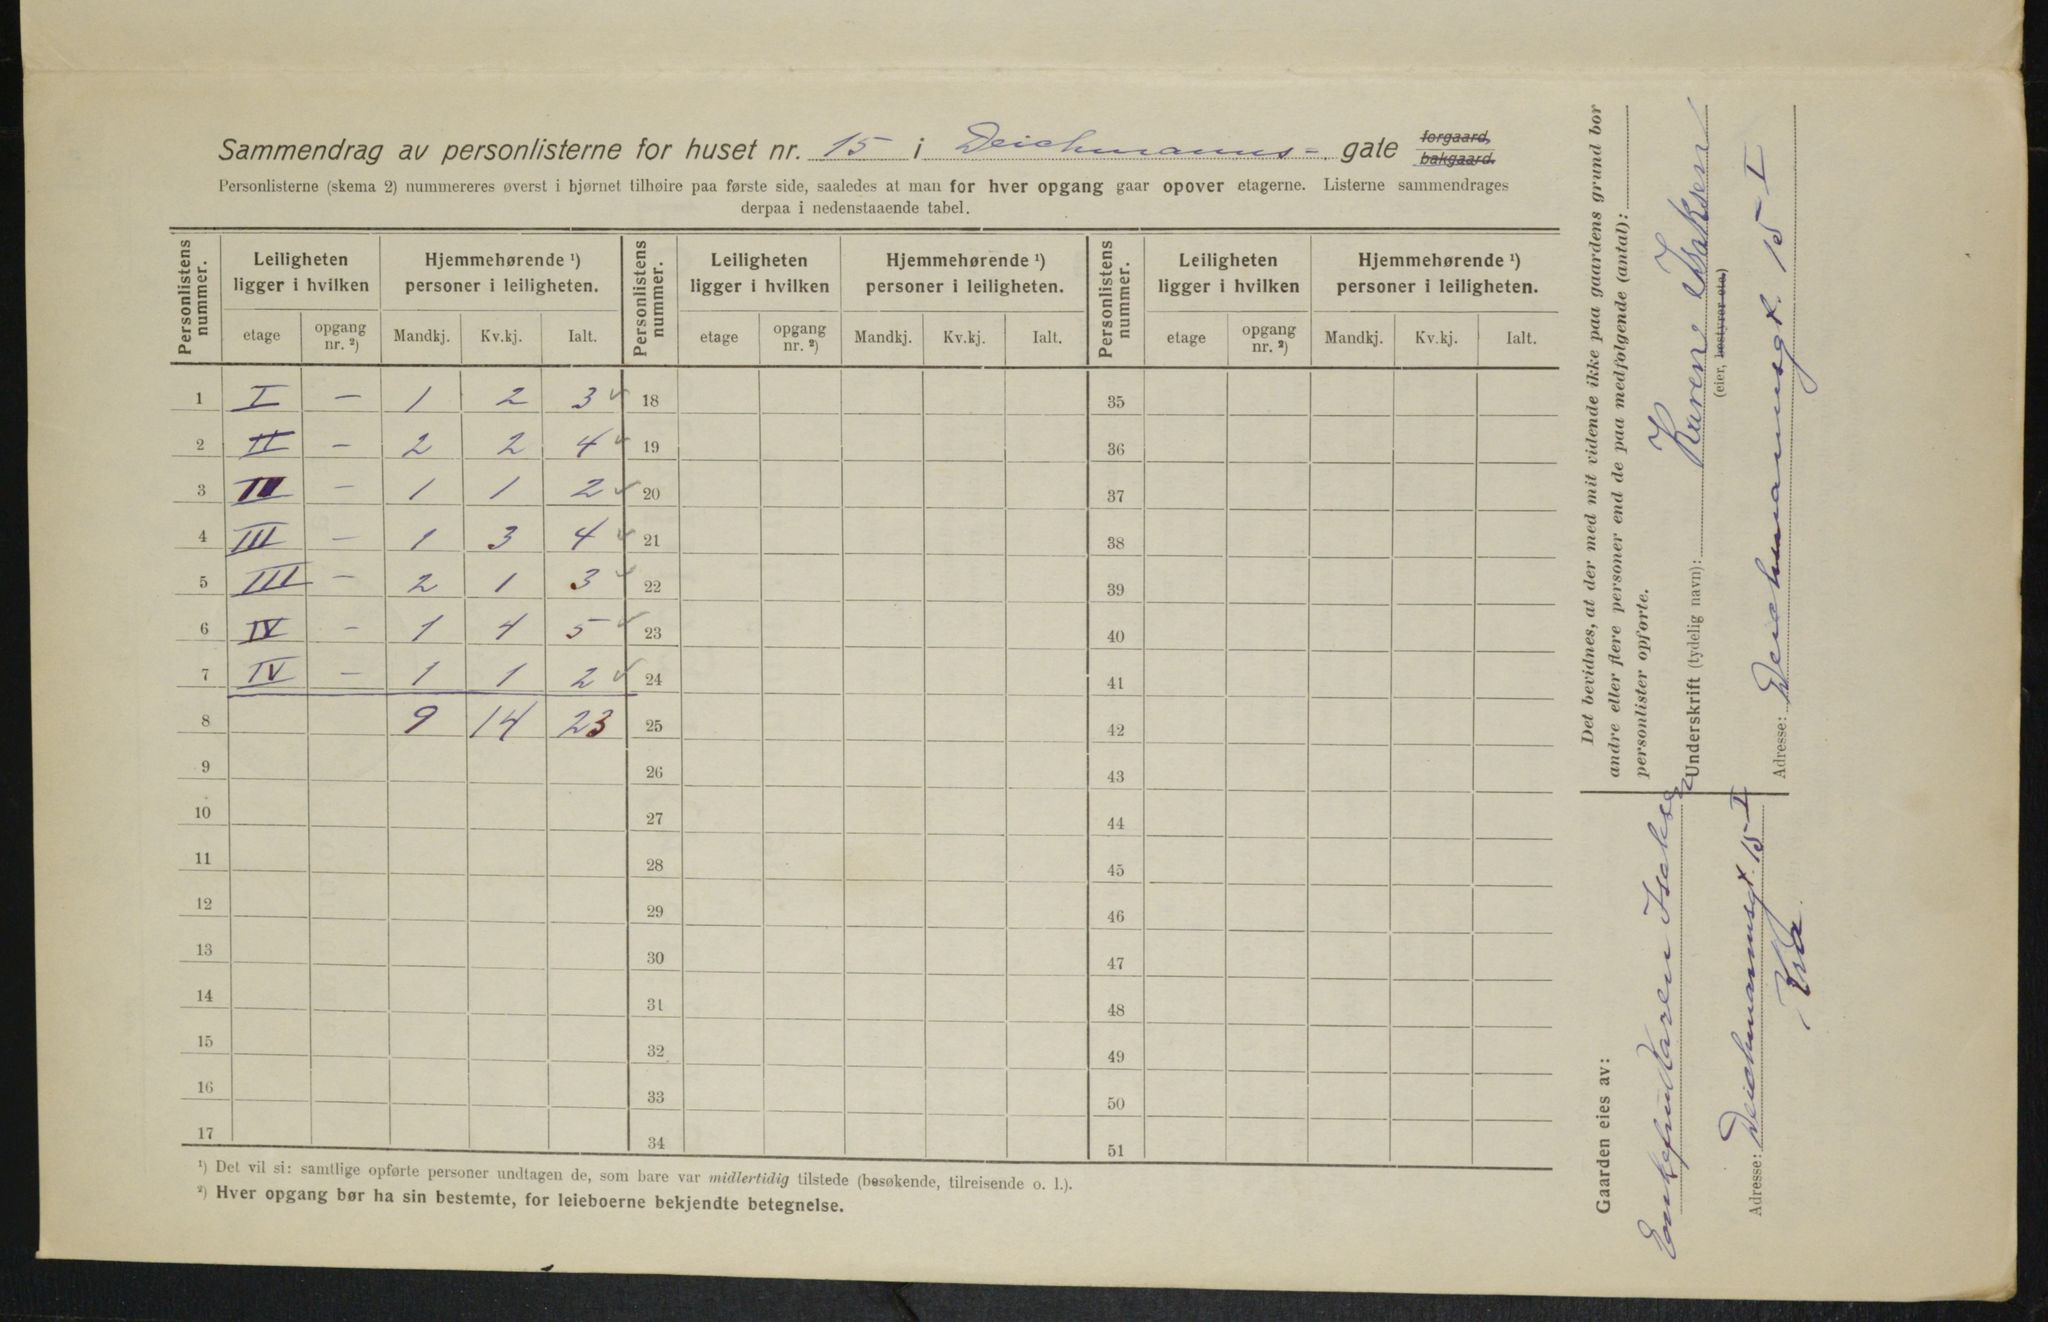 Sammendrag av personlisterne for huset nr. 15 i Deichmanns- gate forgaard, bakgaard.
Personlisterne (skema 2) nummereres øverst i bjørnet tilhøire paa første side, saaledes at man for hver opgang gaar opover etagerne. Listerne sammendrages
derpaa i nedenstaaende tabel.
Personlistens nummer. Leiligheten ligger i hvilken Hjemmehørende ¹) personer i leiligheten. Personlistens nummer. Leiligheten ligger i hvilken Hjemmehørende ¹) personer i leiligheten. Personlistens nummer. Leiligheten ligger i hvilken Hjemmehørende ¹) personer i leiligheten.
etage opgang nr. ²) Mandkj. Kv.kj. Ialt. etage opgang nr. ²) Mandkj. Kv.kj. Ialt. etage opgang nr. ²) Mandkj. Kv.kj. Ialt.
1 I — 1 2 3 ✓ 18 35
2 II — 2 2 4 ✓ 19 36
3 II — 1 1 2 ✓ 20 37
4 III — 1 3 4 ✓ 21 38
5 III — 2 1 3 ✓ 22 39
6 IV — 1 4 5 ✓ 23 40
7 IV — 1 1 2 ✓ 24 41
8 9 14 23 25 42
9 26 43
10 27 44
11 28 45
12 29 46
13 30 47
14 31 48
15 32 49
16 33 50
17 34 51
¹) Det vil si: samtlige opførte personer undtagen de, som bare var midlertidig tilstede (besøkende, tilreisende o. l.).
²) Hver opgang bør ha sin bestemte, for leieboerne bekjendte betegnelse.
Det bevidnes, at der med mit vidende ikke paa gaardens grund bor
andre eller flere personer end de paa medfølgende (antal):
personlister opførte.
Underskrift (tydelig navn): Karen Isaksen
(eier, bestyrer etc.)
Adresse: Deichmannsgt. 15 I
Gaarden eies av:
Enkefru Karen Isaksen
Adresse: Deichmannsgt. 15 I
Kra.